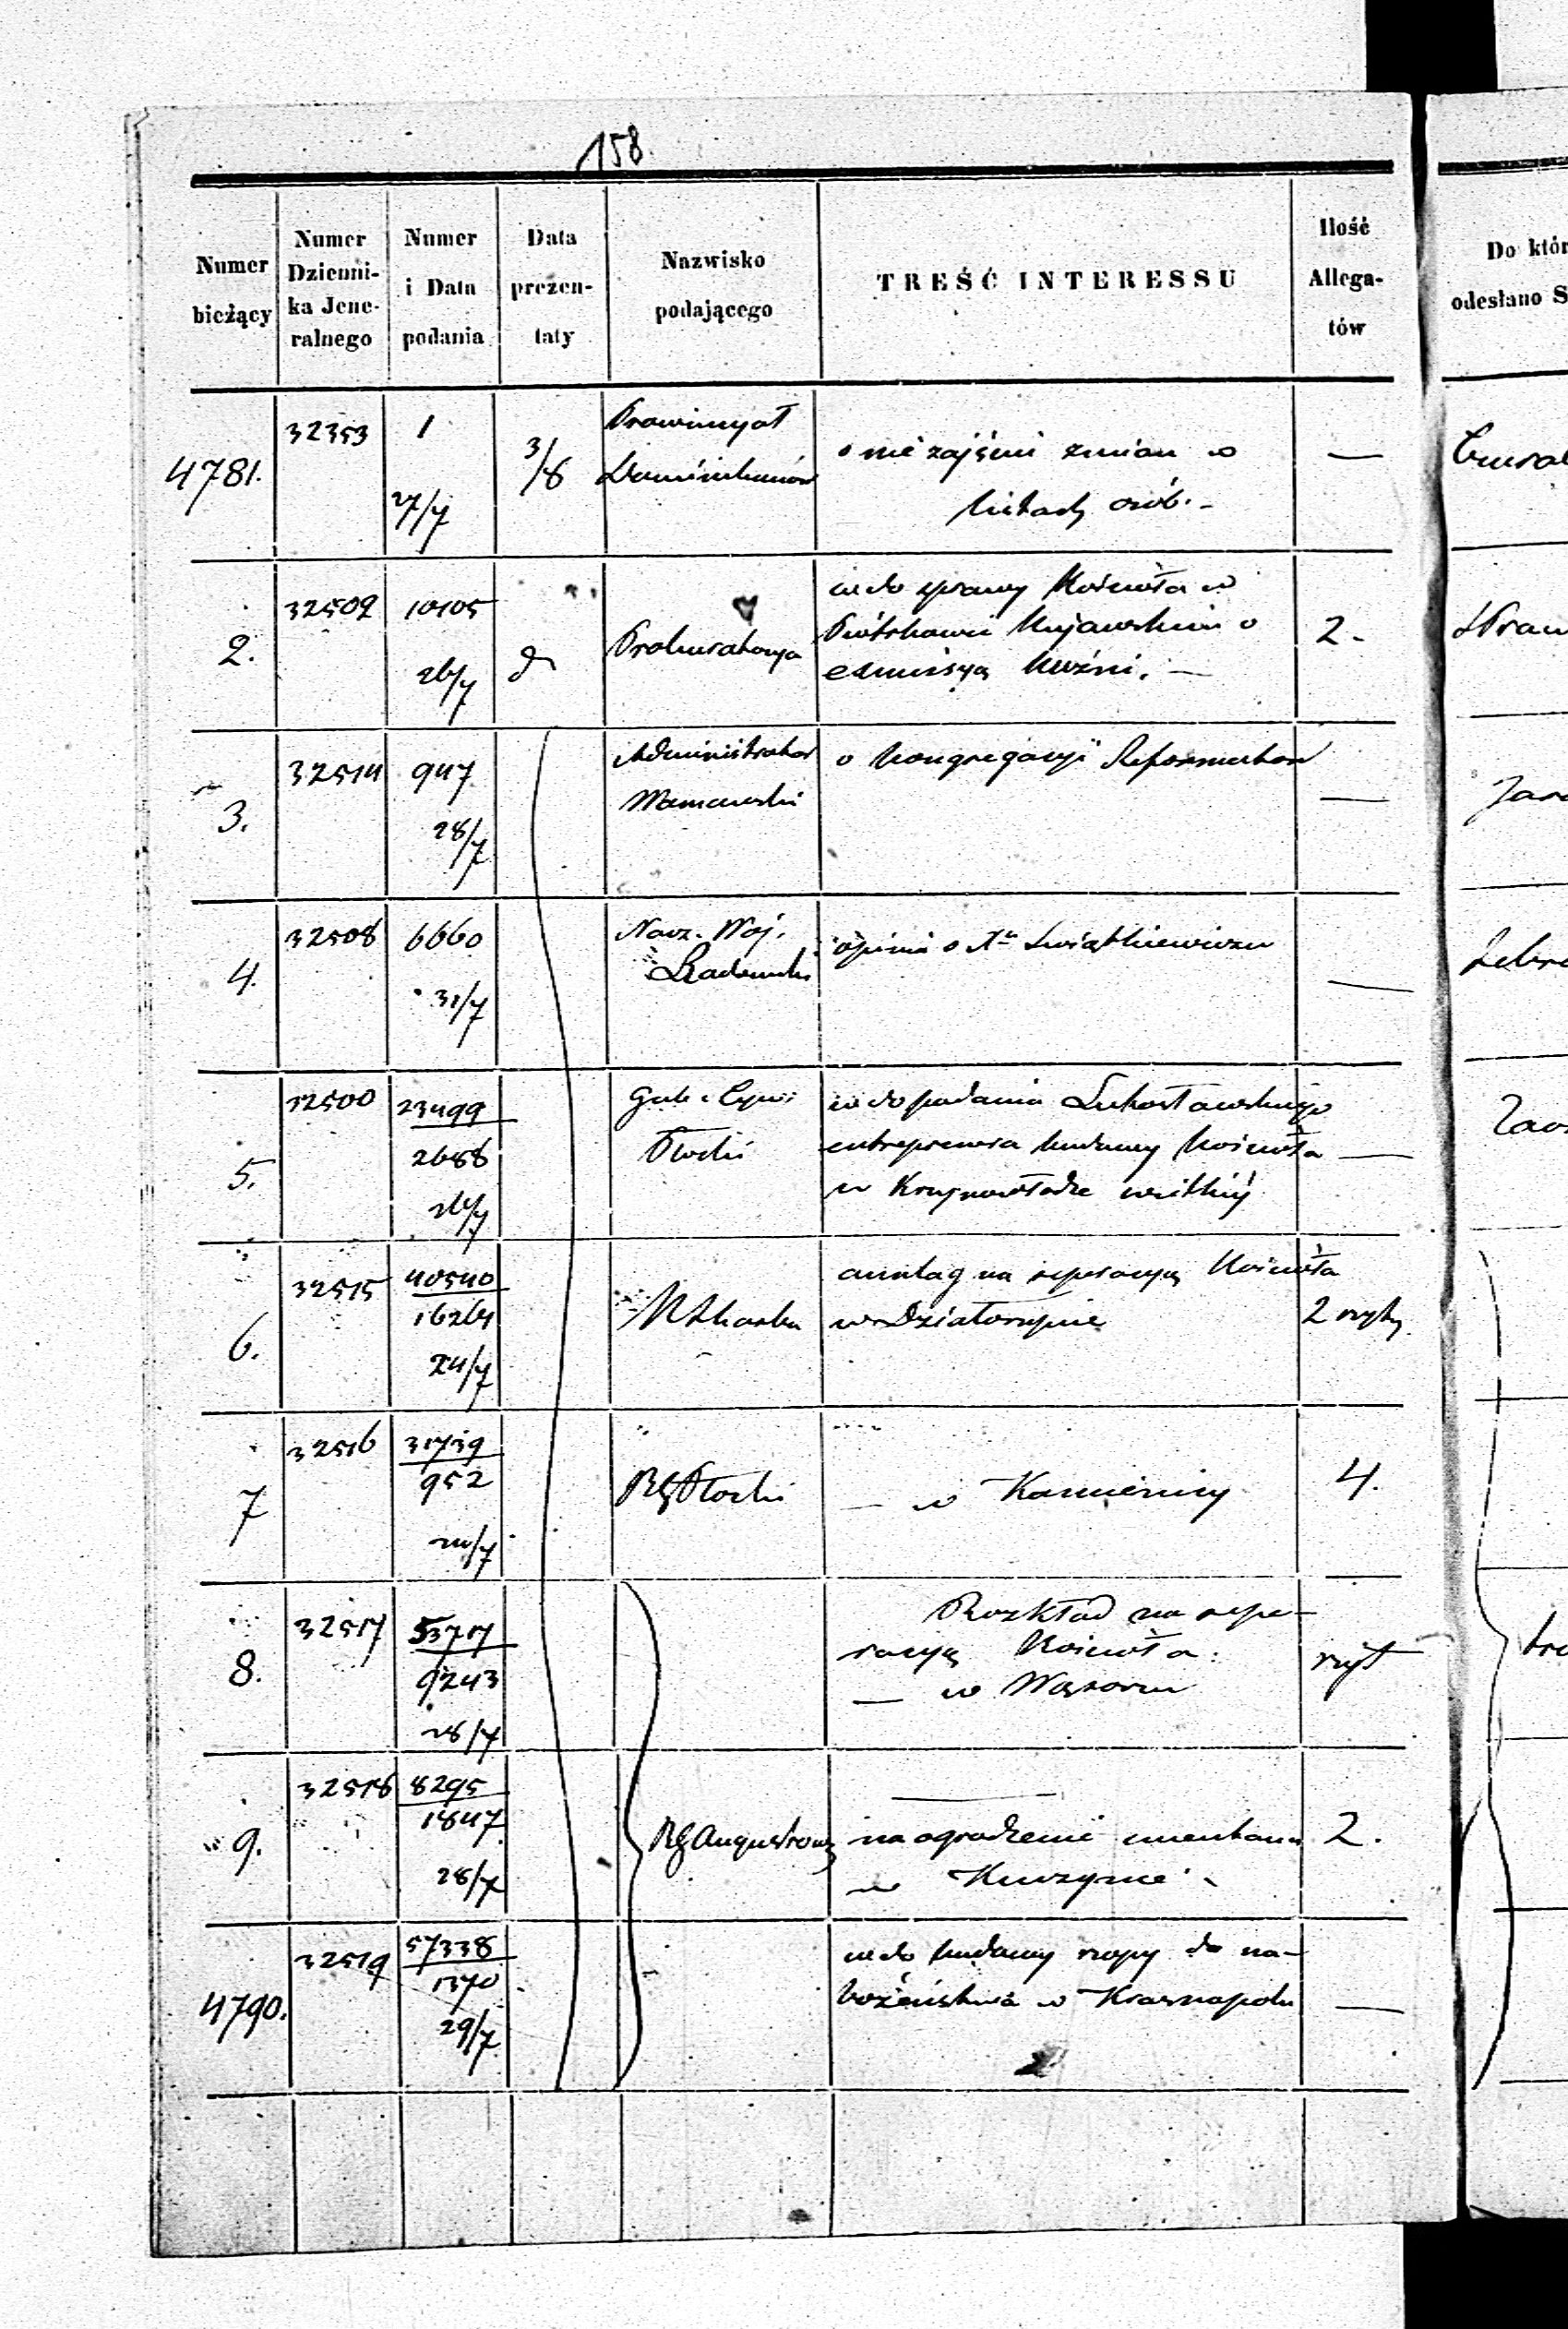 158.
Numer bieżący
Numer Dzienni-
ka Jene-
ralnego
Numer i Data podania
Data prezen-
taty
Nazwisko podającego
TREŚĆ INTERESSU
Ilość Allega-
tów
Do któr
odesłano S
4781.
32353
1
27/7
3/8
Prowincyał
Dominikanów
o nie zajściu zmian w
listach osób. -
—
2.
32509
10105
26/7
d
Prokuratorya
wdo sprawy Kościoła w
Piotrkowie Kujawskim o
exmissyą Kuźni. —
2.
3.
32514
947
28/7
Administrator
o kongregacyi Reformatów
—
Zare
4.
32508
6660
31/7
Nacz. Woj.
Radomski
opinia o Xu Swiątkiewiczu
—
5.
32500
23499
2688
26/7
Gub. Cywi
Płocki
wdo podania Lubosławskiego
entreprenera budowy Kościoła
w Krzynowłodze wielkiej
—
6.
32515
40540
16264
24/7
anszlag na reperacyą Kościoła
w Działoszynie
2 ryty
7
32516
31739
952
RGPłocki
— w Kamienicy
4.
8.
32517
53717
9243
28/7
Rozkład na repe-
racyą Kościoła
— w Wąsoszu
ryt
9.
32518
8295
1847
28/7
RGAugustows
—
na ogrodzenie cmentarza
w Kuczynie
2.
4790.
32519
57338
1370
29/7
wdo budowy szopy do na-
bożeństwa w Krasnopolu
—